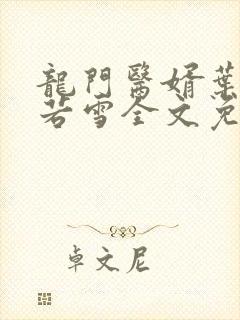 龍門醫婿葉
若雪全文免
卓文尼